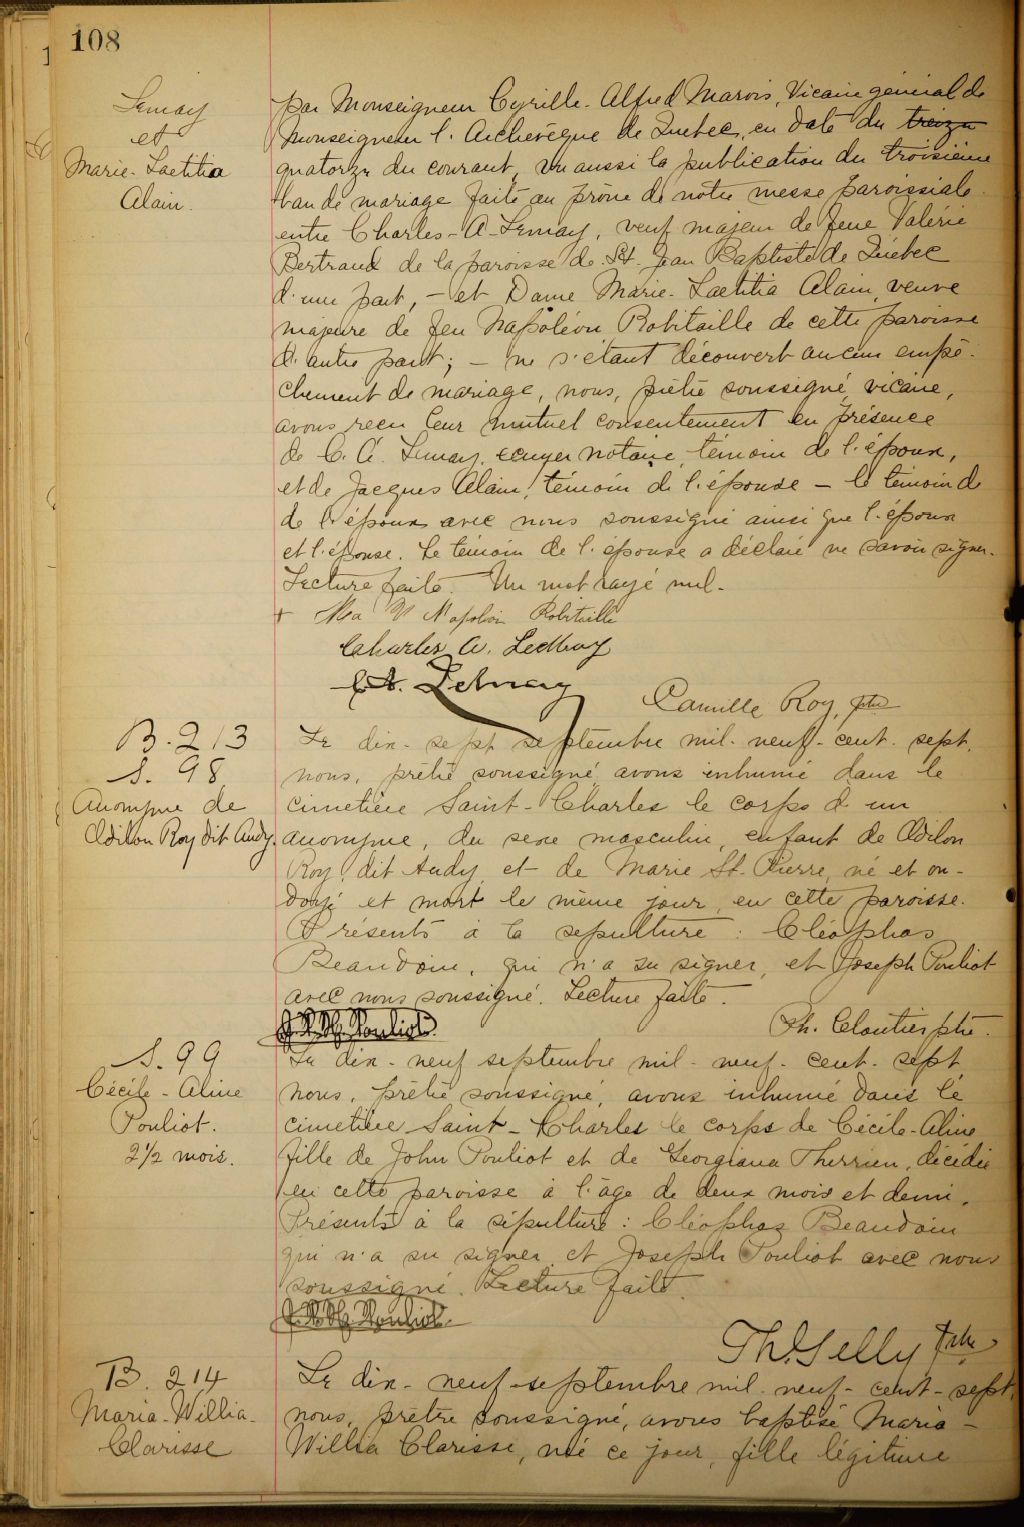 108
Lemay
et
Marie-Laetitia
Alain.
par Monseigneur Cyrille-Alfred Marois, Vicaire général de
Monseigneur l'Archevêque de Québec, en date du treize
quatorze du courant, vu aussi la publication du troisième
ban de mariage faite au prône de notre messe paroissiale
entre Charles-A-Lemay, veuf majeur de feue Valérie
Bertrand de la paroisse de St. Jean Baptiste de Québec
d'une part, - et Dame Marie-Laetitia Alain, veuve
majeure de feu Napoléon Robitaille de cette paroisse
d'autre part; - ne s'étant découvert aucun empê-
chement de mariage, nous, prêtre soussigné, vicaire,
avons reçu leur mutuel consentement en présence
de C. A. Lemay, écuyer notaire, témoin de l'époux,
et de Jacques Alain, témoin de l'épouse - le témoin de
de l'époux avec nous soussigné ainsi que l'époux
et l'épouse. Le témoin de l'épouse a déclaré ne savoir signer.
Lecture faite. Un mot rayé nul.
+ Napoléon Robitaille
Charles A. LeMay
C.A. Lemay
Camille Roy, ptre
B. 213
S. 98
Anonyme de
Odilon Roy dit Audy.
Le dix-sept septembre mil-neuf-cent-sept,
nous, prêtre soussigné, avons inhumé dans le
cimetière Saint-Charles le corps d'un
anonyme, du sexe masculin, enfant de Odilon
Roy, dit Audy, et de Marie St-Pierre, né et on-
doyé et mort le même jour, en cette paroisse.
Présents à la sépulture : Cléophas
Beaudoin, qui n'a su signer, et Joseph Pouliot
avec nous soussigné. Lecture faite.
Pouliot.
Ph. Cloutier ptre.
S. 99
Cécile-Aline
Pouliot.
2 1/2 mois.
Le dix-neuf septembre mil-neuf-cent-sept,
nous, prêtre soussigné, avons inhumé dans le
cimetière Saint-Charles le corps de Cécile-Aline
fille de John Pouliot et de Georgiana Therrien, décédée
en cette paroisse à l'âge de deux mois et demi.
Présents à la sépulture : Cléophas Beaudoin
qui n'a su signer et Joseph Pouliot avec nous
soussigné. Lecture faite.
Pouliot.
Th. Gelly ptre
B. 214
Maria-Willia-
Clarisse
Le dix-neuf-septembre mil-neuf-cent-sept,
nous, prêtre soussigné, avons baptisé Maria-
Willia Clarisse, née ce jour, fille légitime